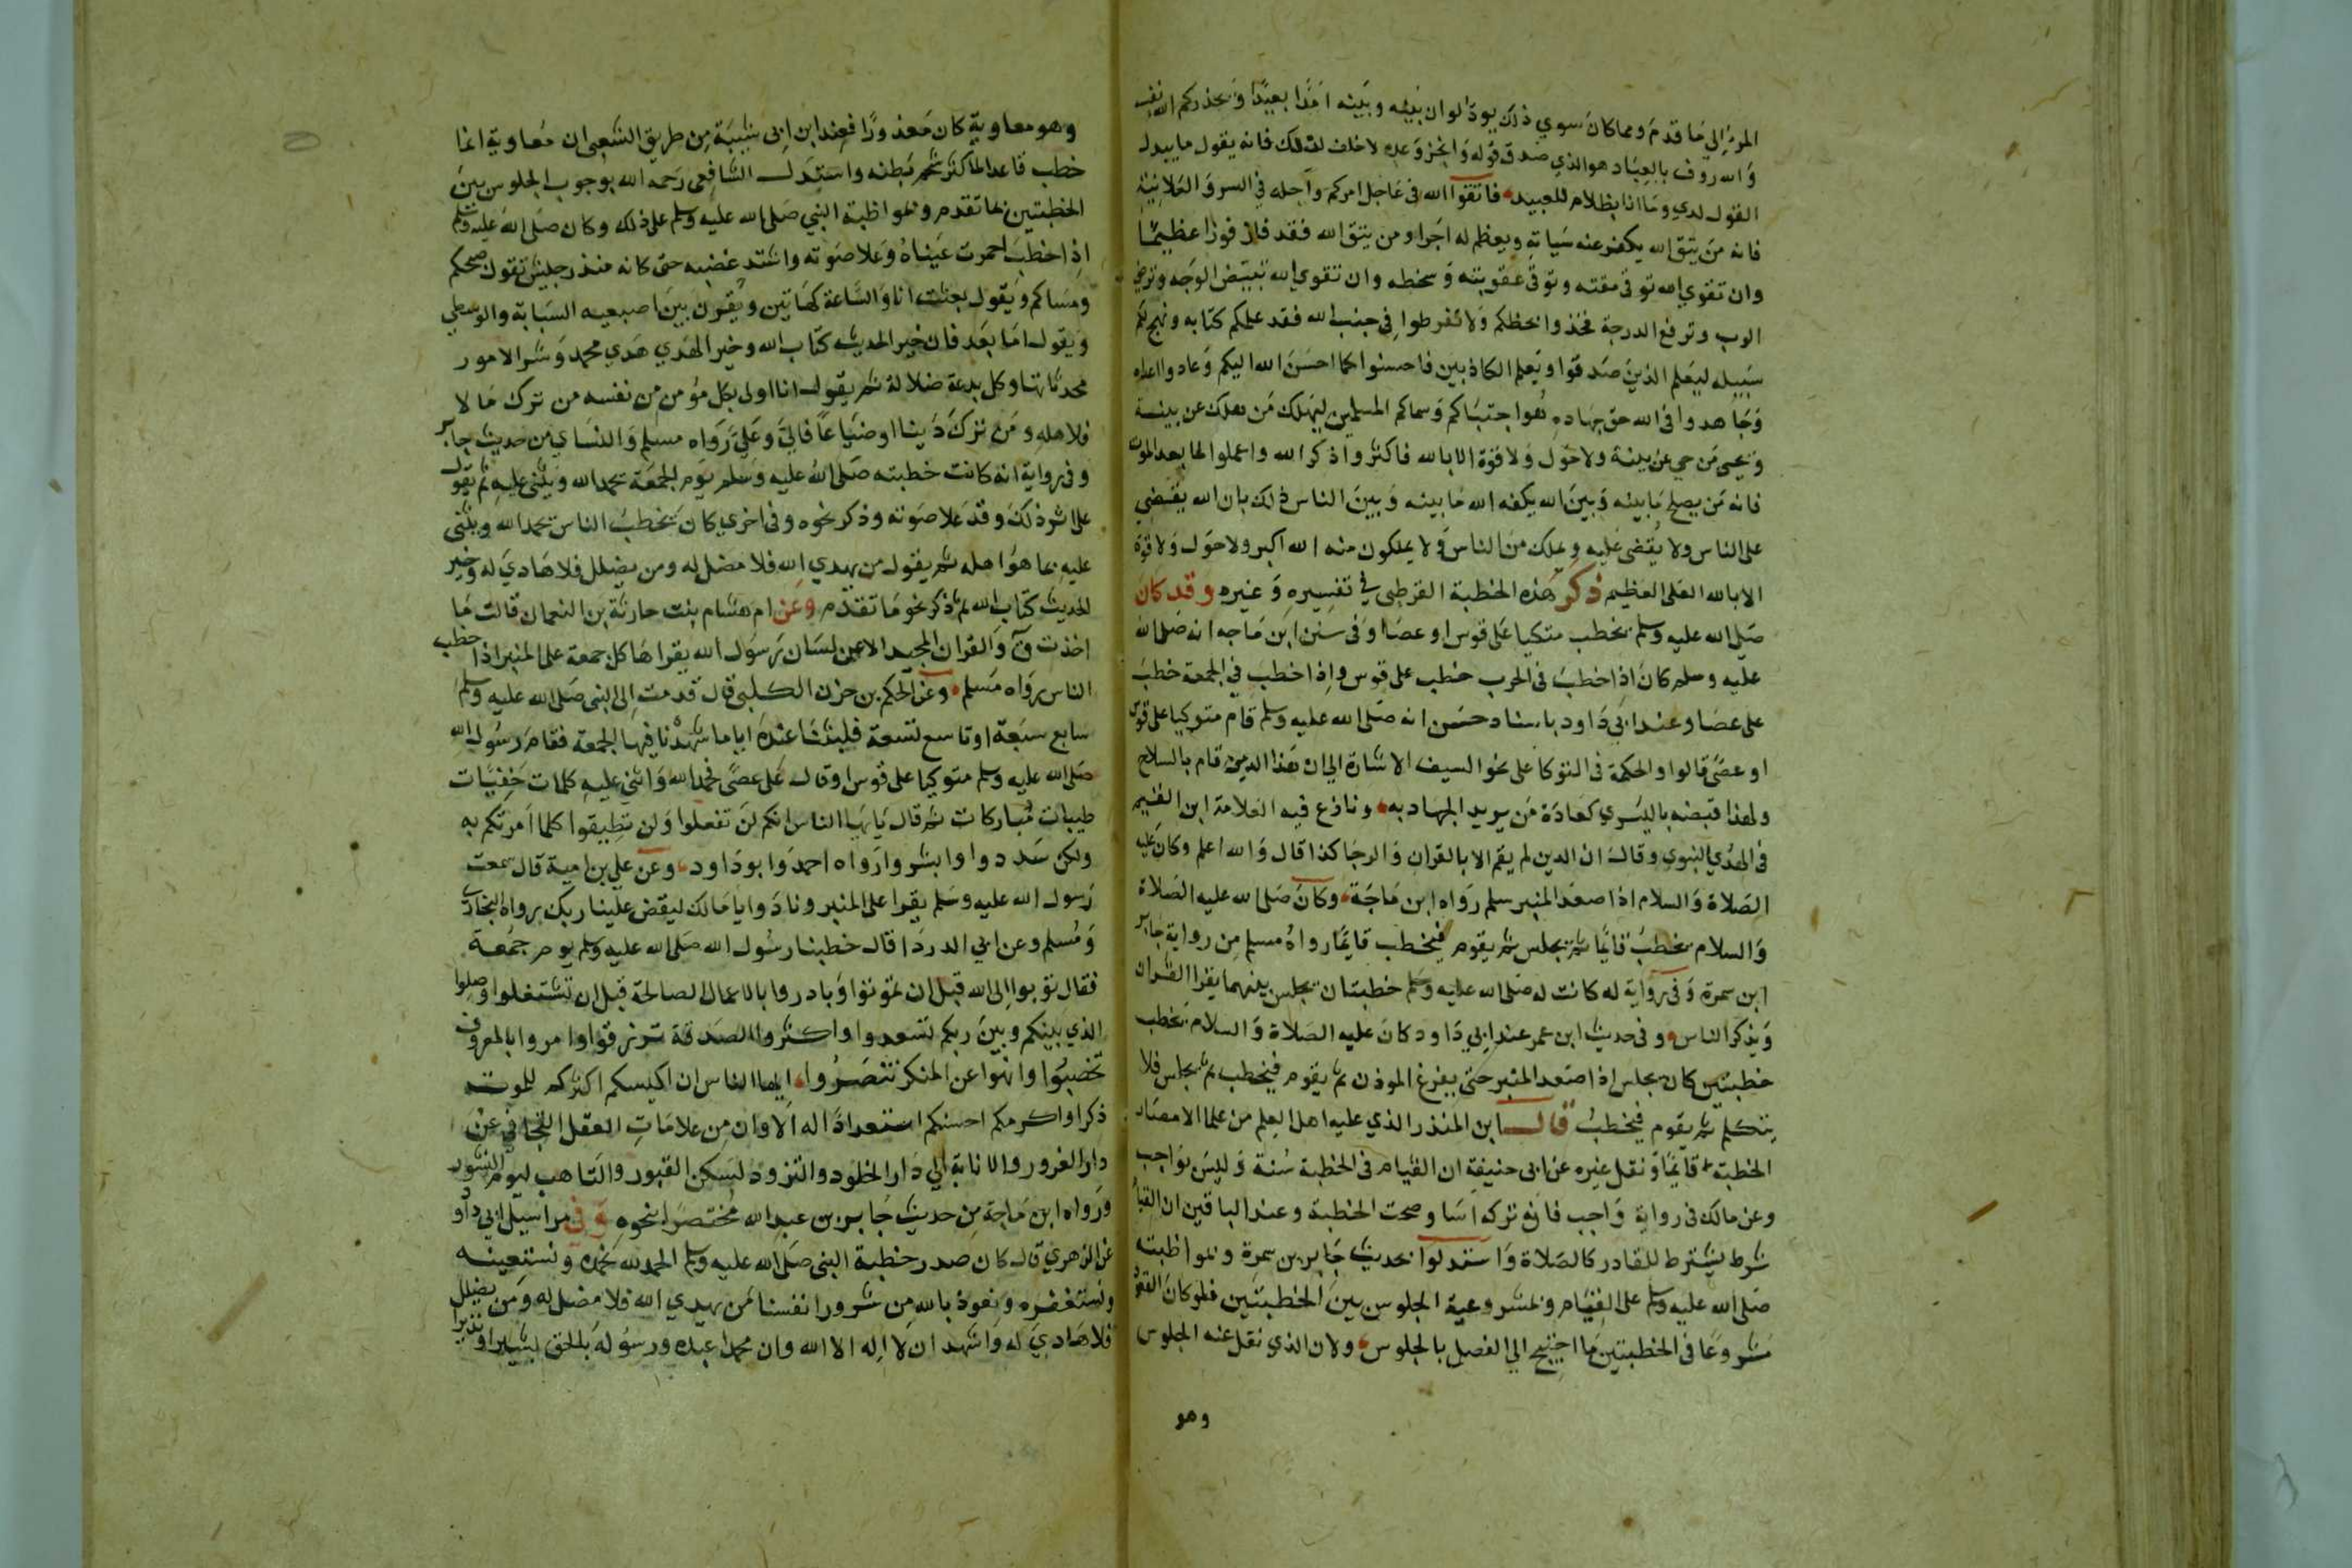 المرء الي ما قدم ومما كان سوي ذلك يود لو ان بينه وبينه امدا بعيدا ويحذركم الله نفسه
والله روف بالعباد هو الذي صدق قوله وانجز وعده لا خلف لذلك فانه يقول ما يبدل
القول لدي وما انا بظلام للعبيد فاتقوا الله في عاجل امركم واجله في السر والعلانية
فانه من يتق الله يكفر عنه سياته ويعظم له اجرا ومن يتق الله فقد فاز فوزا عظيما
وان تقوي الله توقي مقته وتوقي عقوبته وسخطه وان تقوي الله تبيض الوجه وترضي
الرب وترفع الدرجة فخذوا بحظكم ولا تفرطوا في جنب الله فقد علمكم كتابه ونهج لكم
سبيله ليعلم الذين صدقوا ويعلم الكاذبين فاحسنوا كما احسن الله اليكم وعادوا اعداه
وجاهدوا في الله حق جهاده هو اجتباكم وسماكم المسلمين ليهلك من هلك عن بينة
ويحيى من حي عن بينة ولا حول ولا قوة الا بالله فاكثروا ذكر الله واعملوا لما بعد الموت
فانه من يصلح ما بينه وبين الله يكفه الله ما بينه وبين الناس ذلك بان الله يقضي
على الناس ولا يقضى عليه ويملك من الناس ولا يملكون منه الله اكبر ولا حول ولا قوة
الا بالله العلى العظيم ذكر هذه الخطبة القرطبى في تفسيره وغيره وقد كان
صلى الله عليه وسلم يخطب متكيا على قوس او عصا وفي سنن ابن ماجه انه صلى الله
عليه وسلم كان اذا خطب في الحرب خطب على قوس واذا خطب في الجمعة خطب
على عصا وعند ابي داود باسناد حسن انه صلى الله عليه وسلم قام متوكيا على قوس
او عصى قالوا والحكمة في التوكا على نحو السيف الاشارة الي ان هذا الدين قام بالسلاح
ولهذا قبضه باليسري كعادة من يريد الجهاد به ونازع فيه العلامة ابن القيم
في الهدي النبوي وقال ان الدين لم يقم الا بالقران والوحي كذا قال والله اعلم وكان عليه
الصلاة والسلام اذا صعد المنبر سلم رواه ابن ماجة وكان صلى الله عليه الصلاة
والسلام يخطب قايما ثم يجلس ثم يقوم فيخطب قايما رواه مسلم من رواية جابر
ابن سمرة وفي رواية له كانت له صلى الله عليه وسلم خطبتان يجلس بينهما يقرا القران
ويذكر الناس وفي حديث ابن عمر عند ابي داود كان عليه الصلاة والسلام يخطب
خطبتين كان يجلس اذا صعد المنبر حتى يفرغ الموذن ثم يقوم فيخطب ثم يجلس فلا
يتكلم ثم يقوم فيخطب قال ابن المنذر الذي عليه اهل العلم من علما الامصار
الخطبة قايما ونقل غيره عن ابي حنيفة ان القيام في الخطبة سنة وليس بواجب
وعن مالك في رواية واجب فان تركه اسا وصحت الخطبة وعند الباقين ان القيام
شرط يشترط للقادر كالصلاة واستدلوا بحديث جابر بن سمرة وبمواظبته
صلى الله عليه وسلم على القيام وبمشروعية الجلوس بين الخطبتين فلو كان القعود
مشروعا في الخطبتين ما احتيج الي الفصل بالجلوس ولان الذي نقل عنه الجلوس
وهو
وهو معاوية كان معذورا فعند ابن ابى شيبة من طريق الشعبى ان معاوية انما
خطب قاعدا لما كثر شحم بطنه واستدل الشافعى رحمه الله بوجوب الجلوس بين
الخطبتين بما تقدم وبمواظبة النبي صلى الله عليه وسلم على ذلك وكان صلى الله عليه وسلم
اذا خطب احمرت عيناه وعلا صوته واشتد غضبه حتى كانه منذر جيش تقول صبحكم
ومساكم ويقول بعثت انا والساعة كهاتين ويقرن بين اصبعيه السبابة والوسطي
ويقول اما بعد فان خير الحديث كتاب الله وخير الهدي هدي محمد وشر الامور
محدثاتها وكل بدعة ضلالة ثم يقول انا اولى بكل مؤمن من نفسه من ترك مالا
فلاهله ومن ترك دينا او ضياعا فالي وعلي رواه مسلم والنساي من حديث جابر
وفي رواية انه كانت خطبته صلى الله عليه وسلم يوم الجمعة يحمد الله ويثني عليه ثم يقول
على اثر ذلك وقد علا صوته وذكر نحوه وفي اخري كان يخطب الناس يحمد الله ويثنى
عليه بما هو اهله ثم يقول من يهدي الله فلا مضل له ومن يضلل فلا هادي له وخير
الحديث كتاب الله ثم ذكر نحو ما تقدم وعن ام هشام بنت حارثة بن النعمان قالت ما
اخذت ق والقران المجيد الا عن لسان رسول الله يقراها كل جمعة على المنبر اذا خطب
الناس رواه مسلم وعن الحكم بن حزن الكلبي قال قدمت الى النبي صلى الله عليه وسلم
سابع سبعة او تاسع تسعة فلبثنا عنده اياما شهدنا فيها الجمعة فقام رسول الله
صلى الله عليه وسلم متوكيا على قوس او قال على عصى فحمد الله واثني عليه كلمات خفيفات
طيبات مباركات ثم قال يايها الناس انكم لن تفعلوا ولن تطيقوا كلما امرتكم به
ولكن سددوا وابشروا رواه احمد وابو داود وعن علي بن امية قال سمعت
رسول الله عليه وسلم يقرا على المنبر ونادوا يا مالك ليقض علينا ربك رواه البخاري
ومسلم وعن ابي الدردا قال خطبنا رسول الله صلى الله عليه وسلم يوم جمعة
فقال توبوا الى الله قبل ان تموتوا وبادروا بالاعمال الصالحة قبل ان تشتغلوا وصلوا
الذي بينكم وبين ربكم تسعدوا واكثروا الصدقة ترزقوا وامروا بالمعروف
تخصبوا وانهوا عن المنكر تنصروا ايها الناس ان اكيسكم اكثركم للموت
ذكرا واكرمكم احسنكم استعدادا له الا وان من علامات العقل التجافي عن
دار الغرور والانابة الي دار الخلود والتزود لسكن القبور والتاهب ليوم النشور
ورواه ابن ماجة من حديث جابر بن عبد الله مختصرا نحوه وفي مراسيل ابي داود
عن الزهري قال كان صدر خطبة النبي صلى الله عليه وسلم الحمد لله نحمده ونستعينه
ونستغفره ونعوذ بالله من شرور انفسنا من يهدي الله فلا مضل له ومن يضلل
فلا هادي له واشهد ان لا اله الا الله وان محمدا عبده ورسوله بالحق بشيرا ونذيرا